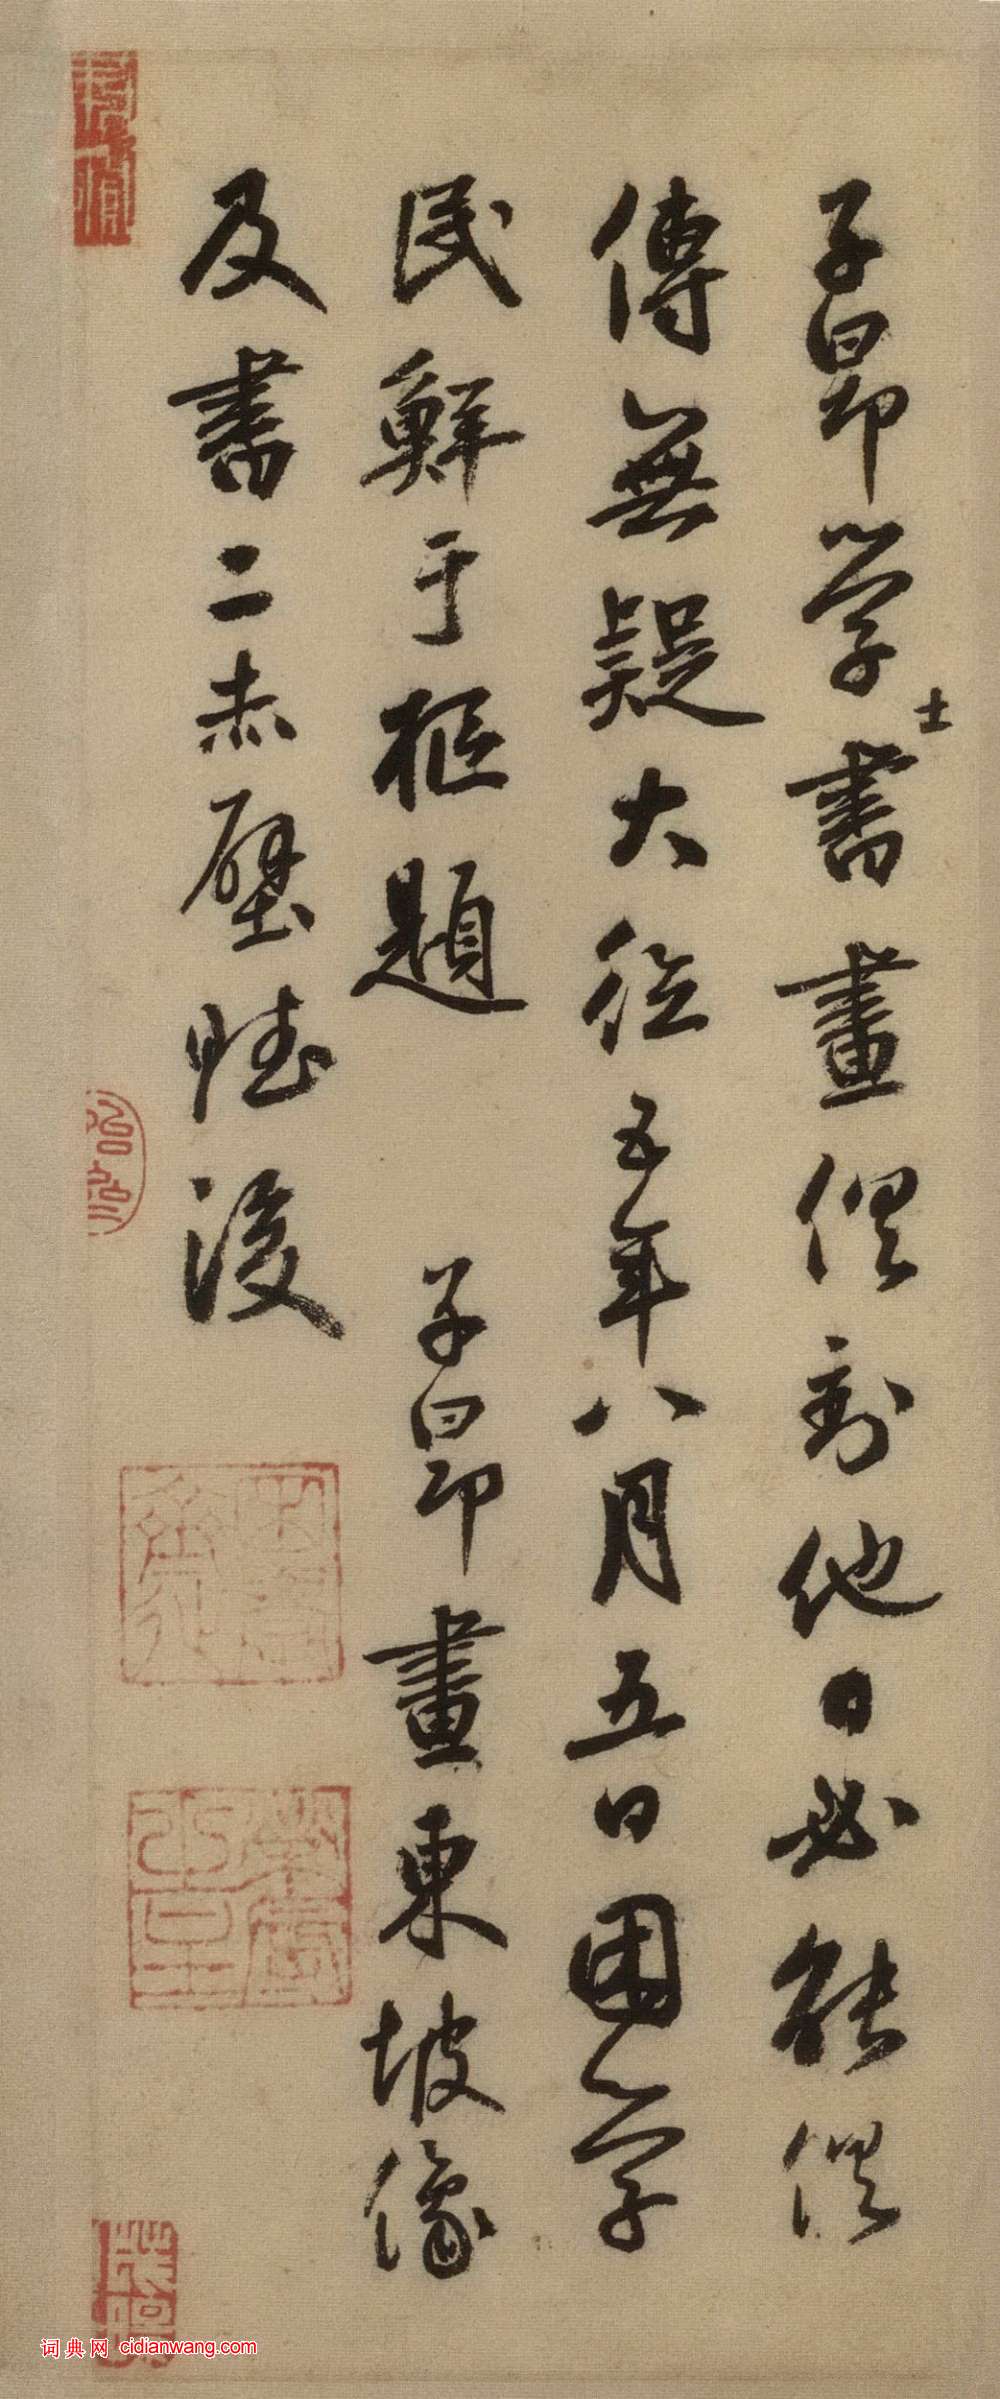 子昂学士書畫俱到他日必能俱
傳無疑大德五年八月五日困学
民鮮于樞題 子昂畫東坡像
及書二赤壁賦後
词典网 cidianwang.com